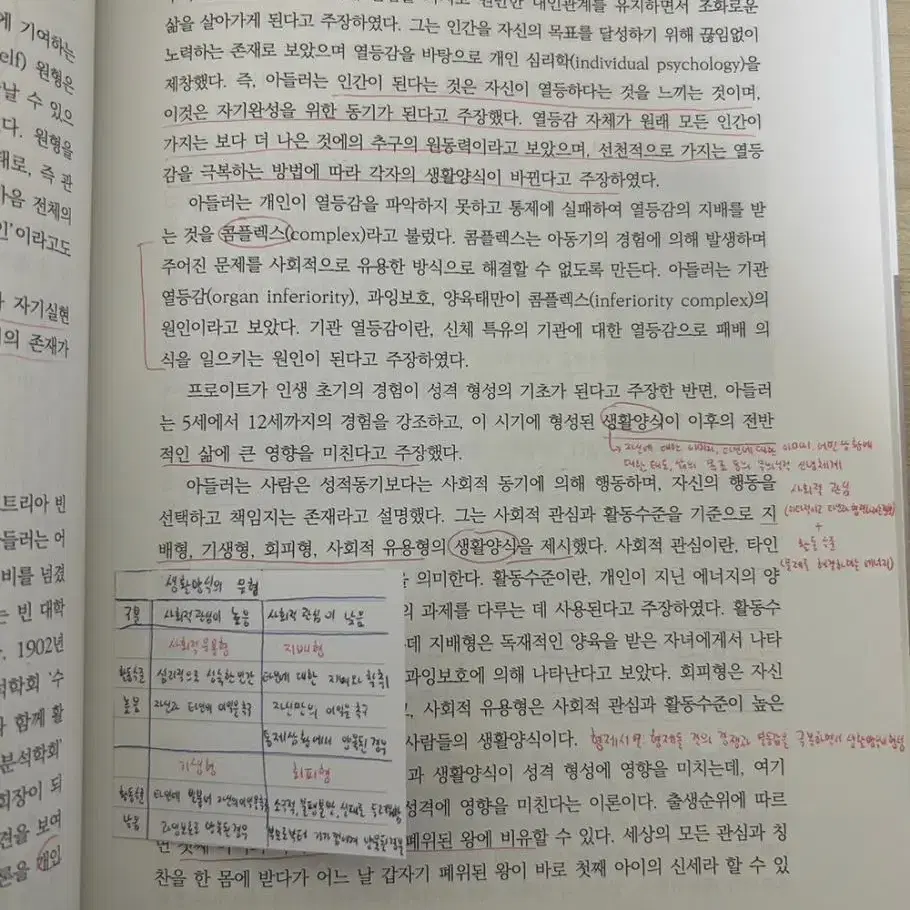 에 기여하는
elf) 원형은
날 수 있으
다. 원형을
대로, 즉 관
마음 전체의
인'이라고도
자기실현
의 존재가
트리아 빈
들러는 어
비를 넘겼
는 빈 대학
1902년
석학회 '수
함께 활
분석학회'
회장이 되
견을 보여
론을 개인
대인관계를 유지하면서 조화로운
삶을 살아가게 된다고 주장하였다. 그는 인간을 자신의 목표를 달성하기 위해 끊임없이
노력하는 존재로 보았으며 열등감을 바탕으로 개인 심리학(individual psychology)을
제창했다. 즉, 아들러는 인간이 된다는 것은 자신이 열등하다는 것을 느끼는 것이며,
이것은 자기완성을 위한 동기가 된다고 주장했다. 열등감 자체가 원래 모든 인간이
가지는 보다 더 나은 것에의 추구의 원동력이라고 보았으며, 선천적으로 가지는 열등
감을 극복하는 방법에 따라 각자의 생활양식이 바뀐다고 주장하였다.
아들러는 개인이 열등감을 파악하지 못하고 통제에 실패하여 열등감의 지배를 받
는 것을 콤플렉스(complex)라고 불렀다. 콤플렉스는 아동기의 경험에 의해 발생하며
주어진 문제를 사회적으로 유용한 방식으로 해결할 수 없도록 만든다. 아들러는 기관
열등감(organ inferiority), 과잉보호, 양육태만이 콤플렉스(inferiority complex)의
원인이라고 보았다. 기관 열등감이란, 신체 특유의 기관에 대한 열등감으로 패배 의
식을 일으키는 원인이 된다고 주장하였다.
프로이트가 인생 초기의 경험이 성격 형성의 기초가 된다고 주장한 반면, 아들러
는 5세에서 12세까지의 경험을 강조하고, 이 시기에 형성된 생활양식이 이후의 전반
적인 삶에 큰 영향을 미친다고 주장했다.
아들러는 사람은 성적동기보다는 사회적 동기에 의해 행동하며, 자신의 행동을
선택하고 책임지는 존재라고 설명했다. 그는 사회적 관심과 활동수준을 기준으로 지
배형, 기생형, 회피형, 사회적 유용형의 생활양식을 제시했다. 사회적 관심이란, 타인
을 의미한다. 활동수준이란, 개인이 지닌 에너지의 양
의 과제를 다루는 데 사용된다고 주장하였다. 활동수
데 지배형은 독재적인 양육을 받은 자녀에게서 나타
과잉보호에 의해 나타난다고 보았다. 회피형은 자신
사회적 유용형은 사회적 관심과 활동수준이 높은
사람들의 생활양식이다.
과 생활양식이 성격 형성에 영향을 미치는데, 여기
성격에 영향을 미친다는 이론이다. 출생순위에 따르
폐위된 왕에 비유할 수 있다. 세상의 모든 관심과 칭
찬을 한 몸에 받다가 어느 날 갑자기 폐위된 왕이 바로 첫째 아이의 신세라 할 수 있
사회적 관심
+
활동수준
생활양식의 유형
구분 사회적관심이 높음 사회적 관심이 낮음
사회적유용형 지배형
활동수준 심리적으로 성숙한 인간 타인에 대한 지배와 착취
높음 자신과 타인의 이익을 추구 자신만의 이익을 추구
통제상황에서 양육된 경우
기생형 회피형
활동수준 타인에
낮음 과잉보호로 양육된 경우